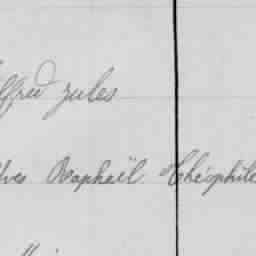 Alfred Jules
Yves Raphaël Théophile